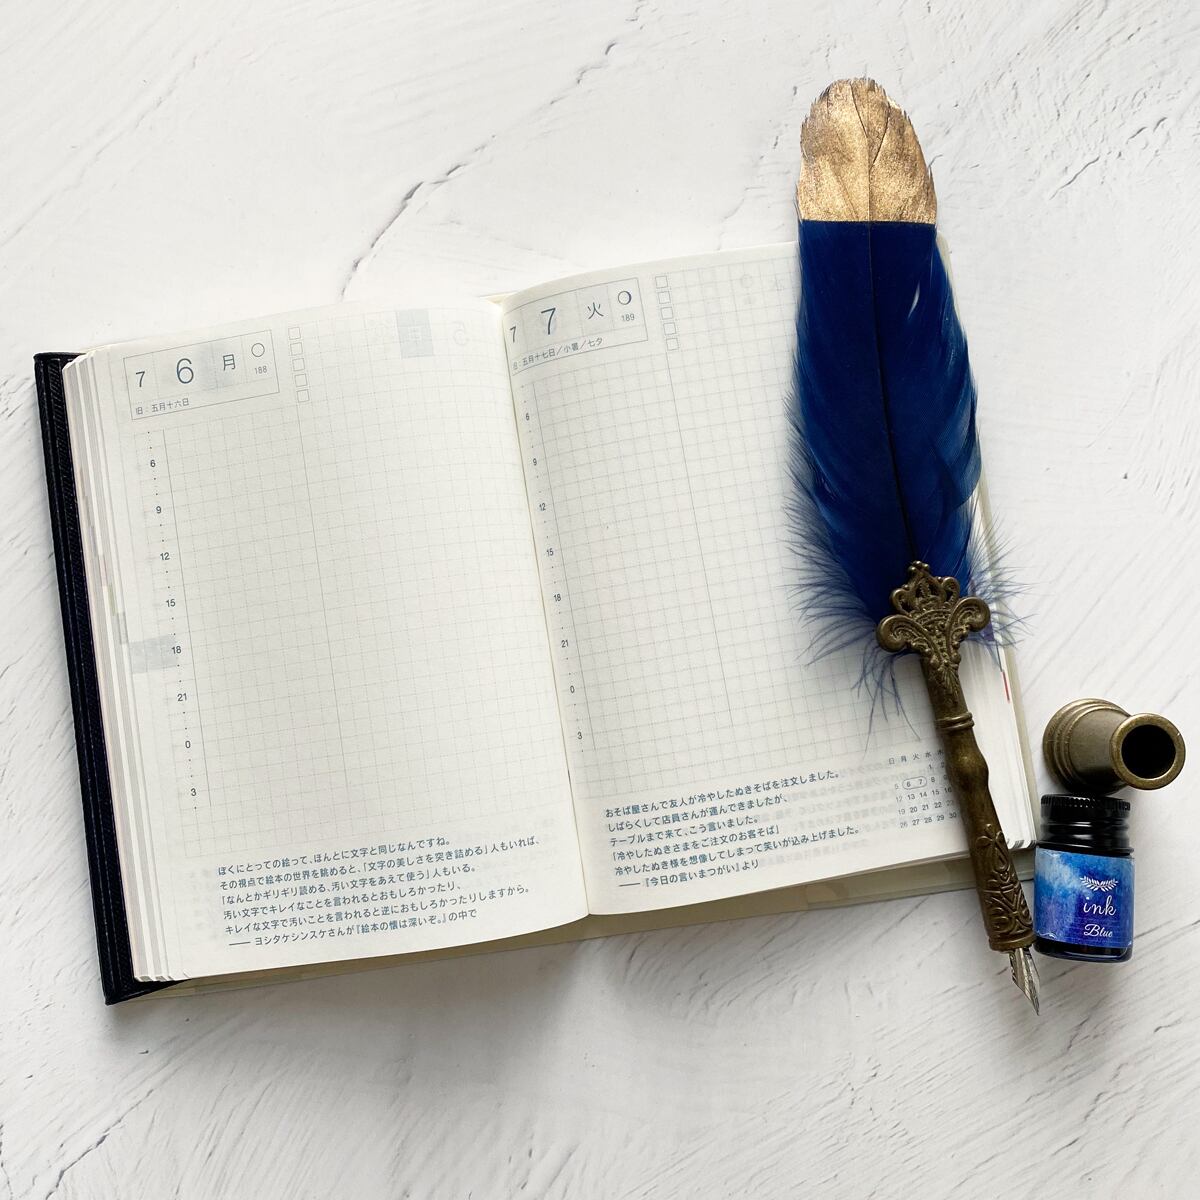 7 6 月 188
旧:五月十六日
6
9
12
15
18
21
0
3
ぼくにとっての絵って、ほんとに文字と同じなんですね。
その視点で絵本の世界を眺めると、「文字の美しさを突き詰める」人もいれば、
「なんとかギリギリ読める、汚い文字をあえて使う」人もいる。
汚い文字でキレイなことを言われるとおもしろかったり、
キレイな文字で汚いことを言われると逆におもしろかったりしますから。
── ヨシタケシンスケさんが『絵本の懐は深いぞ。』の中で
7 7 火 189
旧:五月十七日/小暑/七夕
6
9
12
15
18
21
0
3
おそば屋さんで友人が冷やしたぬきそばを注文しました。
しばらくして店員さんが運んできましたが、
テーブルまで来て、こう言いました。
「冷やしたぬきさまをご注文のお客そば」
冷やしたぬき様を想像してしまって笑いが込み上げました。
──『今日の言いまつがい』より
日 月 火 水 木
1 2
5 6 7 8 9
12 13 14 15 16
19 20 21 22 23
26 27 28 29 30
ink
Blue